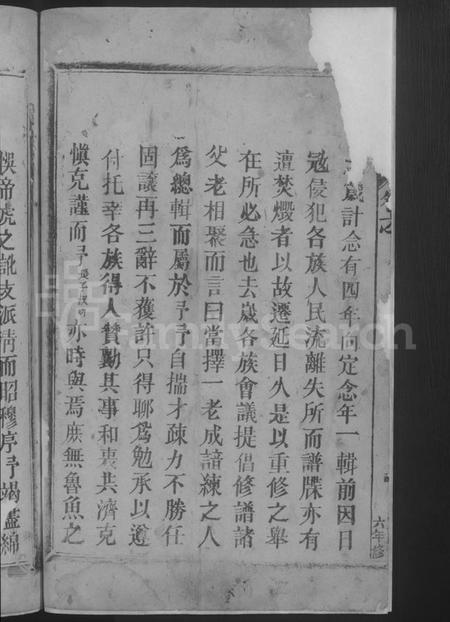 歲計念有四年向定念年一輯前因日
寇侵犯各族人民流離失所而譜牒亦有
遭焚燬者以故遷延日久是以重修之舉
在所必急也去歲各族會議提倡修譜諸
父老相聚而言曰當擇一老成諳練之人
爲總輯而屬於予予自揣才疎力不勝任
固讓再三辭不獲許只得聊爲勉承以遵
付托幸各族得人贊勷其事和衷共濟克
愼克謹而予 亦時與焉庶無魯魚之
悞帝虎之訛支派淸而昭穆序予竭藎綿
六年修
FamilySearch